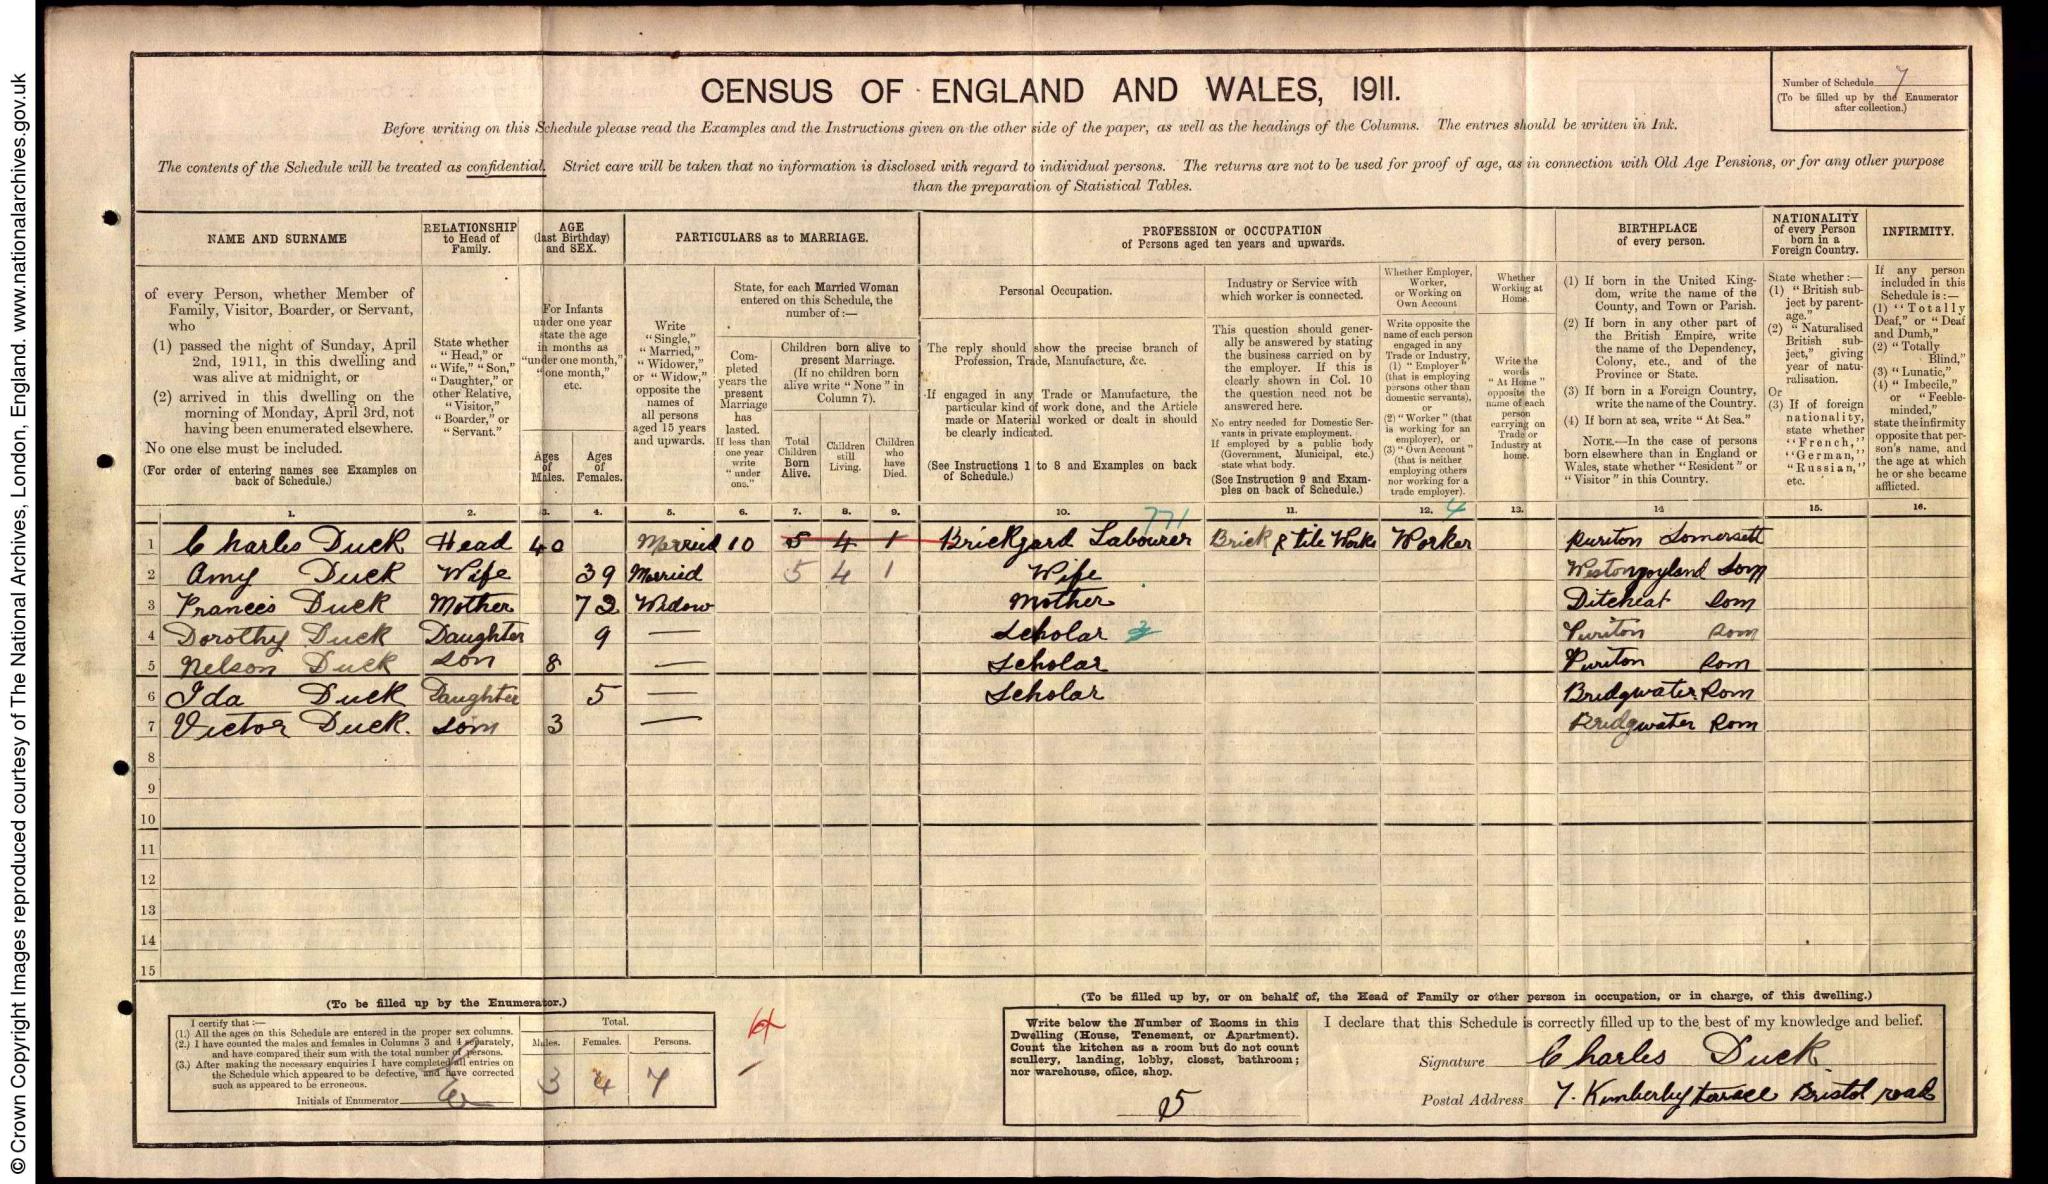 © Crown Copyright Images reproduced courtesy of The National Archives, London, England. www.nationalarchives.gov.uk
CENSUS OF ENGLAND AND WALES, 1911.
Number of Schedule 7
(To be filled up by the Enumerator after collection.)
Before writing on this Schedule please read the Examples and the Instructions given on the other side of the paper, as well as the headings of the Columns. The entries should be written in Ink.
The contents of the Schedule will be treated as confidential. Strict care will be taken that no information is disclosed with regard to individual persons. The returns are not to be used for proof of age, as in connection with Old Age Pensions, or for any other purpose
than the preparation of Statistical Tables.
NAME AND SURNAME
of every Person, whether Member of
Family, Visitor, Boarder, or Servant,
who
(1) passed the night of Sunday, April
2nd, 1911, in this dwelling and
was alive at midnight, or
(2) arrived in this dwelling on the
morning of Monday, April 3rd, not
having been enumerated elsewhere.
No one else must be included.
(For order of entering names see Examples on
back of Schedule.)
RELATIONSHIP
to Head of
Family.
State whether
"Head," or
"Wife," "Son,"
"Daughter," or
other Relative,
"Visitor,"
"Boarder," or
"Servant."
AGE
(last Birthday)
and SEX.
For Infants
under one year
state the age
in months as
"under one month,"
"one month,"
etc.
Ages
of
Males.
Ages
of
Females.
PARTICULARS as to MARRIAGE.
Write
"Single,"
"Married,"
"Widower,"
or "Widow,"
opposite the
names of
all persons
aged 15 years
and upwards.
State, for each Married Woman
entered on this Schedule, the
number of:—
Com-
pleted
years the
present
Marriage
has
lasted.
If less than
one year
write
"under
one."
Children born alive to
present Marriage.
(If no children born
alive write "None" in
Column 7).
Total
Children
Born
Alive.
Children
still
Living.
Children
who
have
Died.
PROFESSION or OCCUPATION
of Persons aged ten years and upwards.
Personal Occupation.
The reply should show the precise branch of
Profession, Trade, Manufacture, &c.
If engaged in any Trade or Manufacture, the
particular kind of work done, and the Article
made or Material worked or dealt in should
be clearly indicated.
(See Instructions 1 to 8 and Examples on back
of Schedule.)
Industry or Service with
which worker is connected.
This question should gener-
ally be answered by stating
the business carried on by
the employer. If this is
clearly shown in Col. 10
the question need not be
answered here.
No entry needed for Domestic Ser-
vants in private employment.
If employed by a public body
(Government, Municipal, etc.)
state what body.
(See Instruction 9 and Exam-
ples on back of Schedule.)
Whether Employer,
Worker,
or Working on
Own Account
Write opposite the
name of each person
engaged in any
Trade or Industry,
(1) "Employer"
(that is employing
persons other than
domestic servants),
or
(2) "Worker" (that
is working for an
employer), or
(3) "Own Account"
(that is neither
employing others
nor working for a
trade employer).
Whether
Working at
Home.
Write the
words
"At Home"
opposite the
name of each
person
carrying on
Trade or
Industry at
home.
BIRTHPLACE
of every person.
(1) If born in the United King-
dom, write the name of the
County, and Town or Parish.
(2) If born in any other part of
the British Empire, write
the name of the Dependency,
Colony, etc., and of the
Province or State.
(3) If born in a Foreign Country,
write the name of the Country.
(4) If born at sea, write "At Sea."
NOTE.—In the case of persons
born elsewhere than in England or
Wales, state whether "Resident" or
"Visitor" in this Country.
NATIONALITY
of every Person
born in a
Foreign Country.
State whether:—
(1) "British sub-
ject by parent-
age."
(2) "Naturalised
British sub-
ject," giving
year of natu-
ralisation.
Or
(3) If of foreign
nationality,
state whether
"French,"
"German,"
"Russian,"
etc.
INFIRMITY.
If any person
included in this
Schedule is:—
(1) "Totally
Deaf," or "Deaf
and Dumb,"
(2) "Totally
Blind,"
(3) "Lunatic,"
(4) "Imbecile,"
or "Feeble-
minded,"
state the infirmity
opposite that per-
son's name, and
the age at which
he or she became
afflicted.
1. 2. 3. 4. 5. 6. 7. 8. 9. 10. 11. 12. 13. 14 15. 16.
771 4
1 Charles Duck Head 40 Married 10 5 4 1 Brickyard Labourer Brick & tile Works Worker Puriton Somersett
2 Amy Duck Wife 39 Married 5 4 1 Wife Westonzoyland Som
3 Frances Duck Mother 72 Widow Mother Ditcheat Som
4 Dorothy Duck Daughter 9 — Scholar Puriton Som
5 Nelson Duck son 8 — Scholar Puriton Som
6 Ida Duck Daughter 5 — Scholar Bridgwater Som
7 Victor Duck. son 3 — Bridgwater Som
8
9
10
11
12
13
14
15
(To be filled up by the Enumerator.)
I certify that:—
(1.) All the ages on this Schedule are entered in the proper sex columns.
(2.) I have counted the males and females in Columns 3 and 4 separately,
and have compared their sum with the total number of persons.
(3.) After making the necessary enquiries I have completed all entries on
the Schedule which appeared to be defective, and have corrected
such as appeared to be erroneous.
Initials of Enumerator
Total.
Males. Females. Persons.
3 4 7
(To be filled up by, or on behalf of, the Head of Family or other person in occupation, or in charge, of this dwelling.)
Write below the Number of Rooms in this
Dwelling (House, Tenement, or Apartment).
Count the kitchen as a room but do not count
scullery, landing, lobby, closet, bathroom;
nor warehouse, office, shop.
5
I declare that this Schedule is correctly filled up to the best of my knowledge and belief.
Signature Charles Duck
Postal Address 7. Kimberley terrace Bristol road